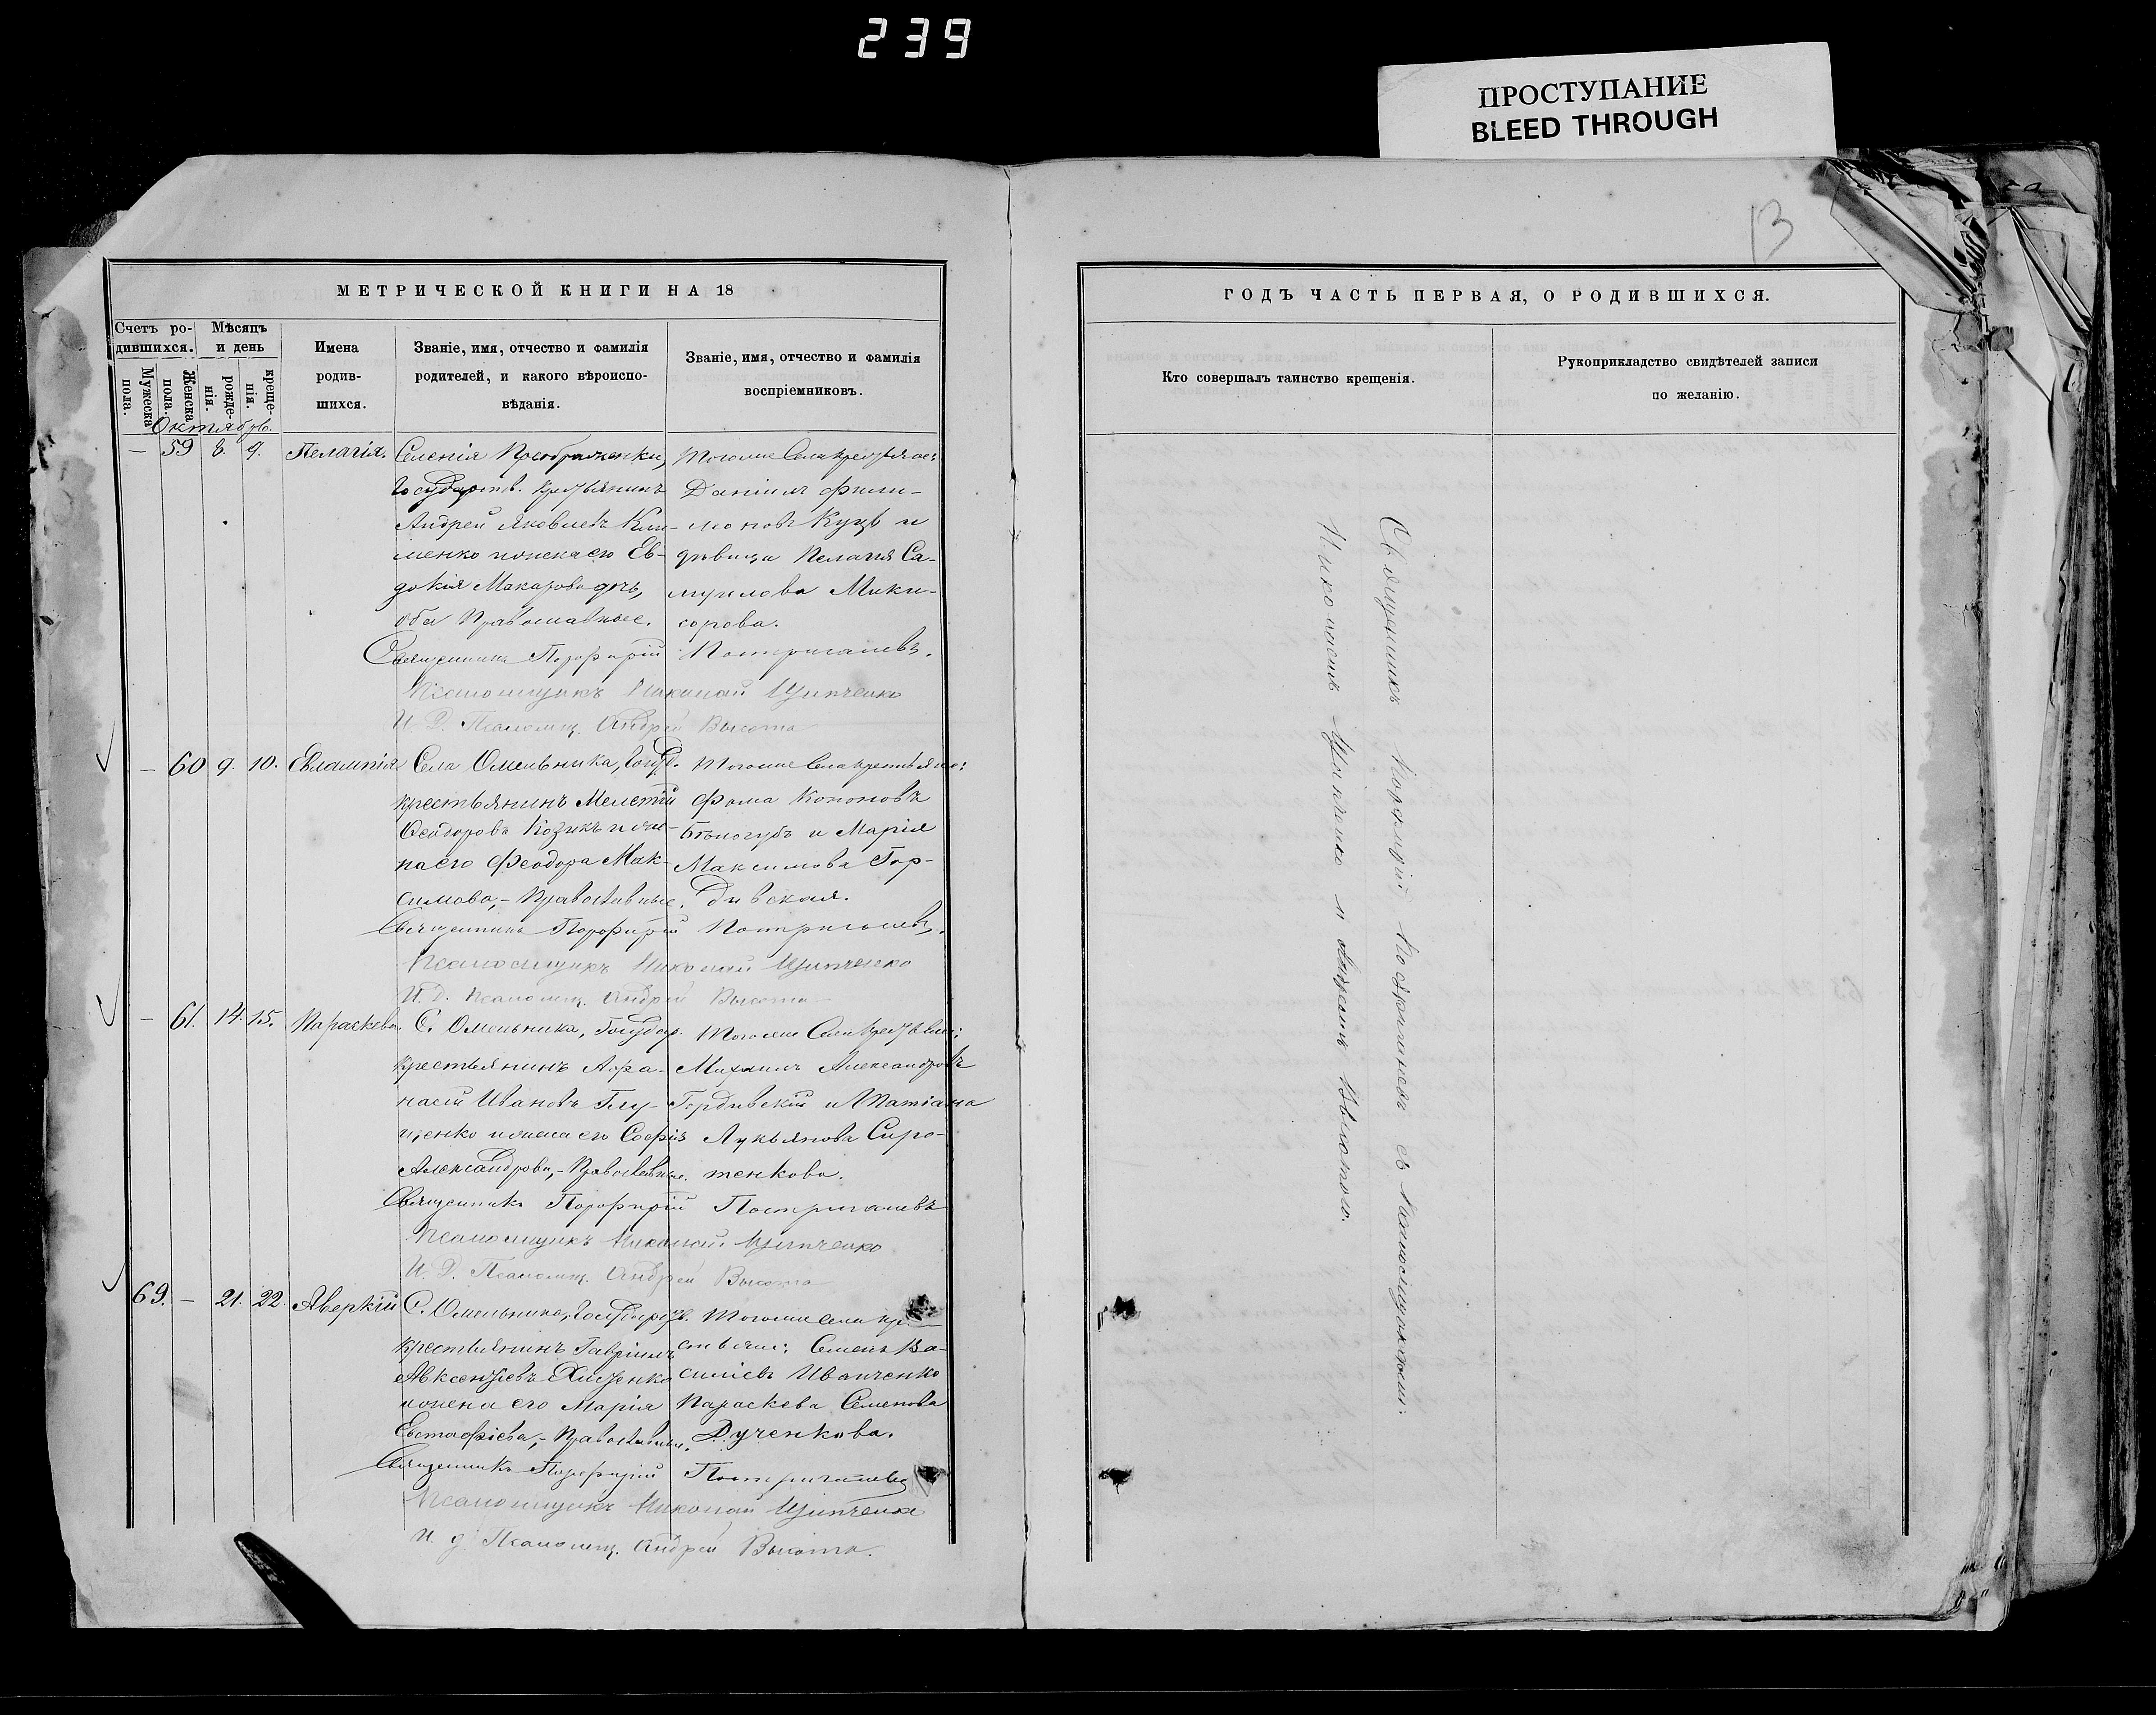 239
ПРОСТУПАНИЕ
BLEED THROUGH
13
МЕТРИЧЕСКОЙ КНИГИ НА 18
Счетъ ро-
дившихся.
Мѣсяцъ
и день
Мужеска
пола.
Женска
пола.
рожде-
нія.
креще-
нія.
Имена
родив-
шихся.
Званіе, имя, отчество и фамилія
родителей, и какого вѣроиспо-
вѣданія.
Званіе, имя, отчество и фамилія
воспріемниковъ.
Октябрь.
— 59 8. 9. Пелагія.
Селенія Преображенки,
Государств. крестьянинъ
Андрей Яковлевъ Кли-
менко и жена его Ев-
докія Макарова дочь,
оба Православные.
Тогоже Села крестьяне:
Даніилъ Фили-
моновъ Куцъ и
дѣвица Пелагія Са-
муилова Мики-
форова.
Священникъ Порфирій Постригачевъ.
Псаломщикъ Николай Щипченко
И. Д. Псаломщ. Андрей Высота
— 60 9. 10. Евлампія
Села Омельника, Госуд.
крестьянинъ Мелетій
Ѳеодоровъ Козикъ и же-
на его Феодора Мак-
симова,- Православные.
Тогоже Села крестьяне:
Фома Кононовъ
Бѣлогубъ и Марія
Максимова Гор-
дивская.
Священникъ Порфирій Постригачевъ.
Псаломщикъ Николай Щипченко
И. Д. Псаломщ. Андрей Высота
— 61. 14. 15. Параскева.
С. Омельника, Государ.
крестьянинъ Афа-
насій Ивановъ Глу-
щенко и жена его Софія
Александрова,- Православные.
Тогоже Села крестьяне:
Михаилъ Александровъ
Гордивскій и Татіана
Лукьянова Сиро-
тенкова.
Священникъ Порфирій Постригачевъ
Псаломщикъ Николай Щипченко
И. Д. Псаломщ. Андрей Высота
69. — 21. 22. Аверкій
С. Омельника, Государств.
крестьянинъ Гавріилъ
Авксентіевъ
и жена его Марія
Евстафіева,- Православные.
Тогоже Села кре-
стьяне: Семенъ Ва-
силіевъ Иванченко
Параскева Семенова
Дученкова.
Священникъ Порфирій Постригачевъ
Псаломщикъ Николай Щипченко
И. д. Псаломщ. Андрей Высота.
ГОДЪ ЧАСТЬ ПЕРВАЯ, О РОДИВШИХСЯ.
Кто совершалъ таинство крещенія.
Рукоприкладство свидѣтелей записи
по желанію.
Священникъ Порфирій Постригачевъ съ Псаломщиками:
Николаемъ Щипченко и Андреемъ Высотою.